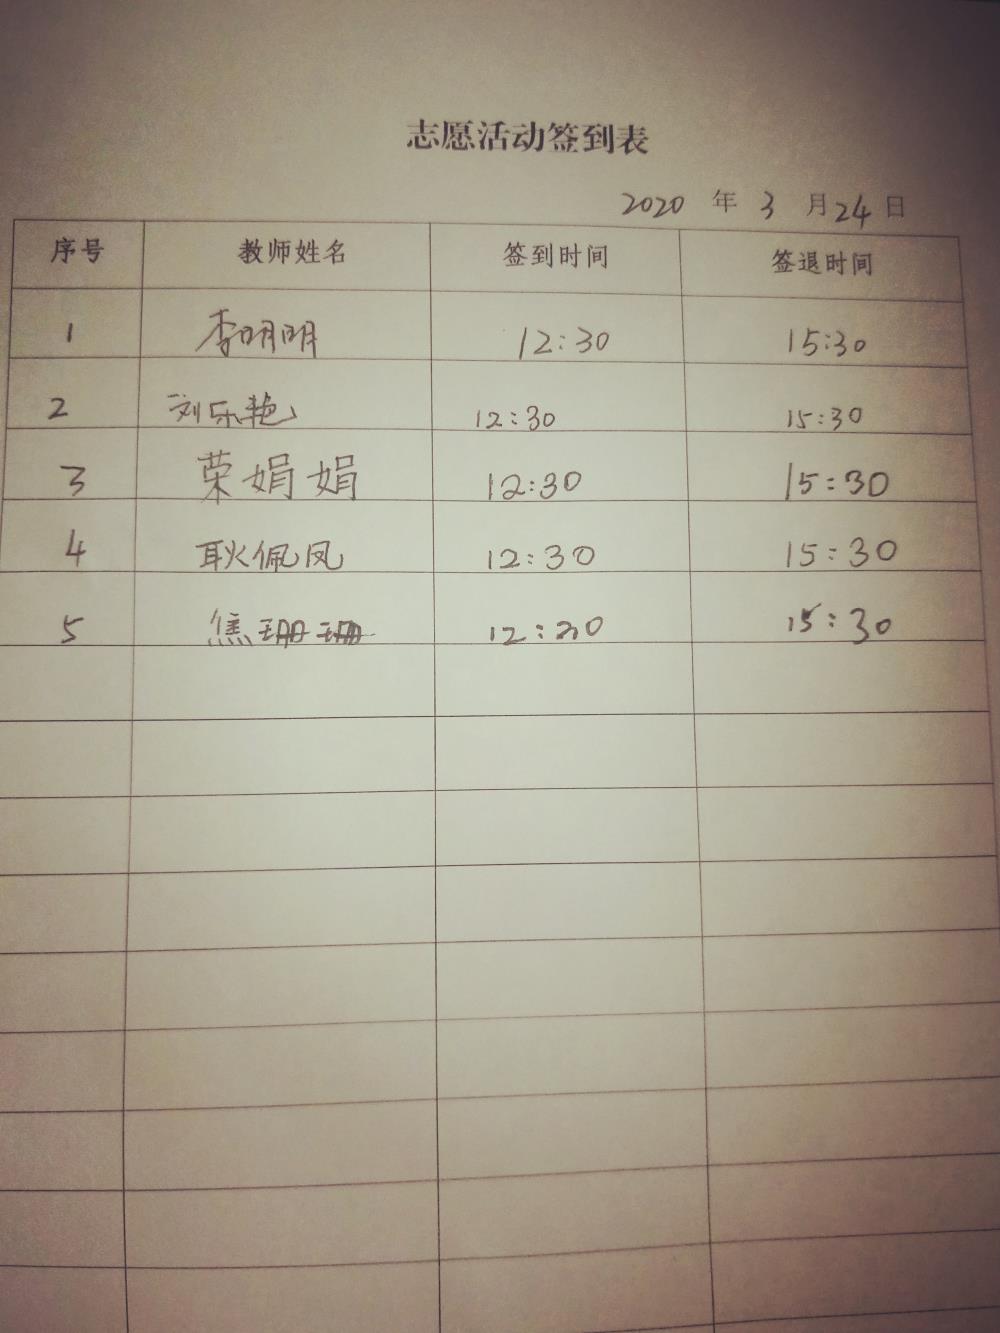 志愿活动签到表
2020 年 3 月 24 日
序号 教师姓名 签到时间 签退时间
1 李明明 12:30 15:30
2 刘乐艳 12:30 15:30
3 荣娟娟 12:30 15:30
4 耿佩凤 12:30 15:30
5 焦珊珊 12:30 15:30